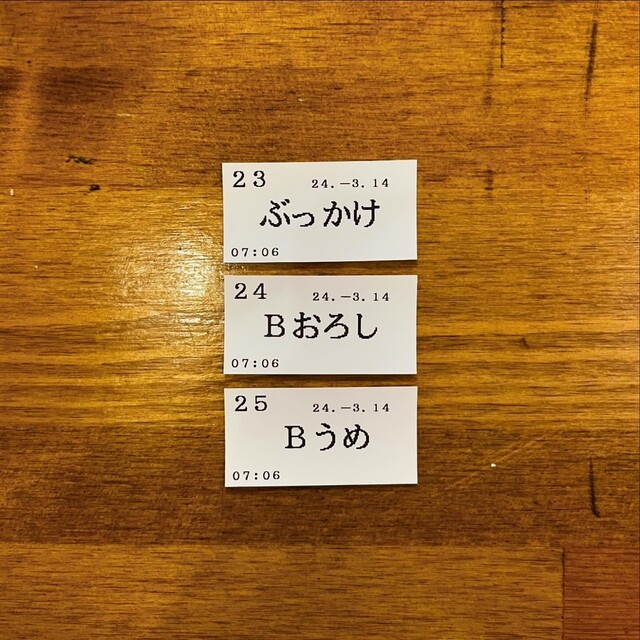 23 24.-3.14
ぶっかけ
07:06
24 24.-3.14
Bおろし
07:06
25 24.-3.14
Bうめ
07:06